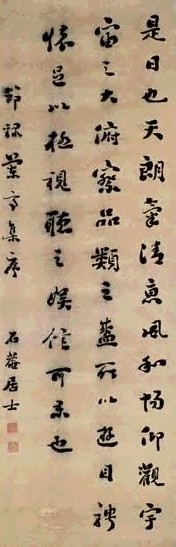 是日也天朗氣清惠風和暢仰觀宇
宙之大俯察品類之盛所以遊目騁
懷足以極視聽之娛信可樂也
節錄蘭亭集序 石菴居士